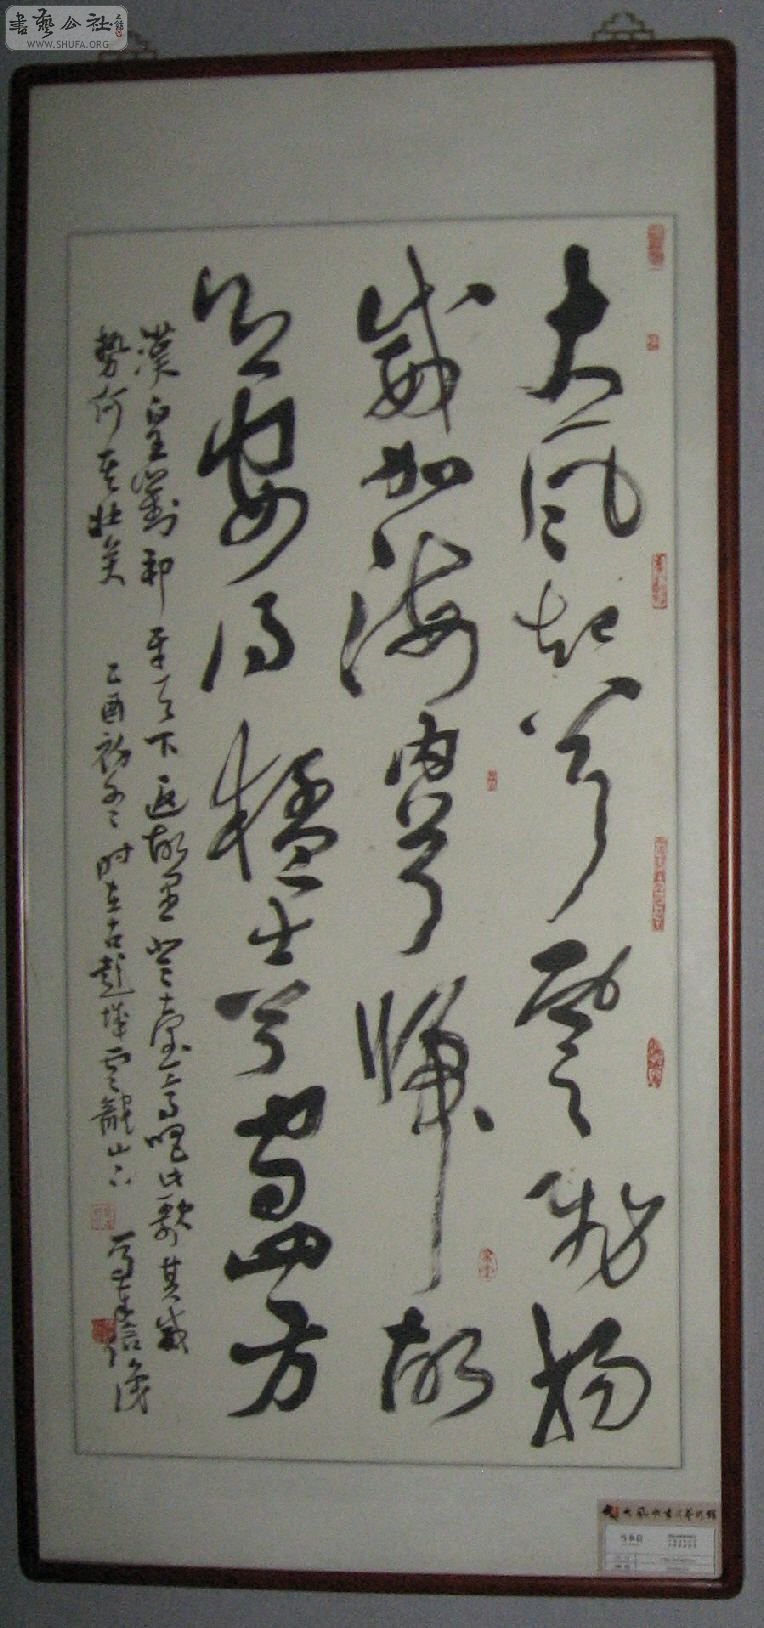 書藝公社
WWW.SHUFA.ORG
大風起兮雲飛揚
威加海內兮歸故
鄉安得猛士兮守四方
漢皇劉邦平天下返故里登臺高唱此歌其威
勢何其壯矣 乙酉初冬時在古彭城雲龍山下